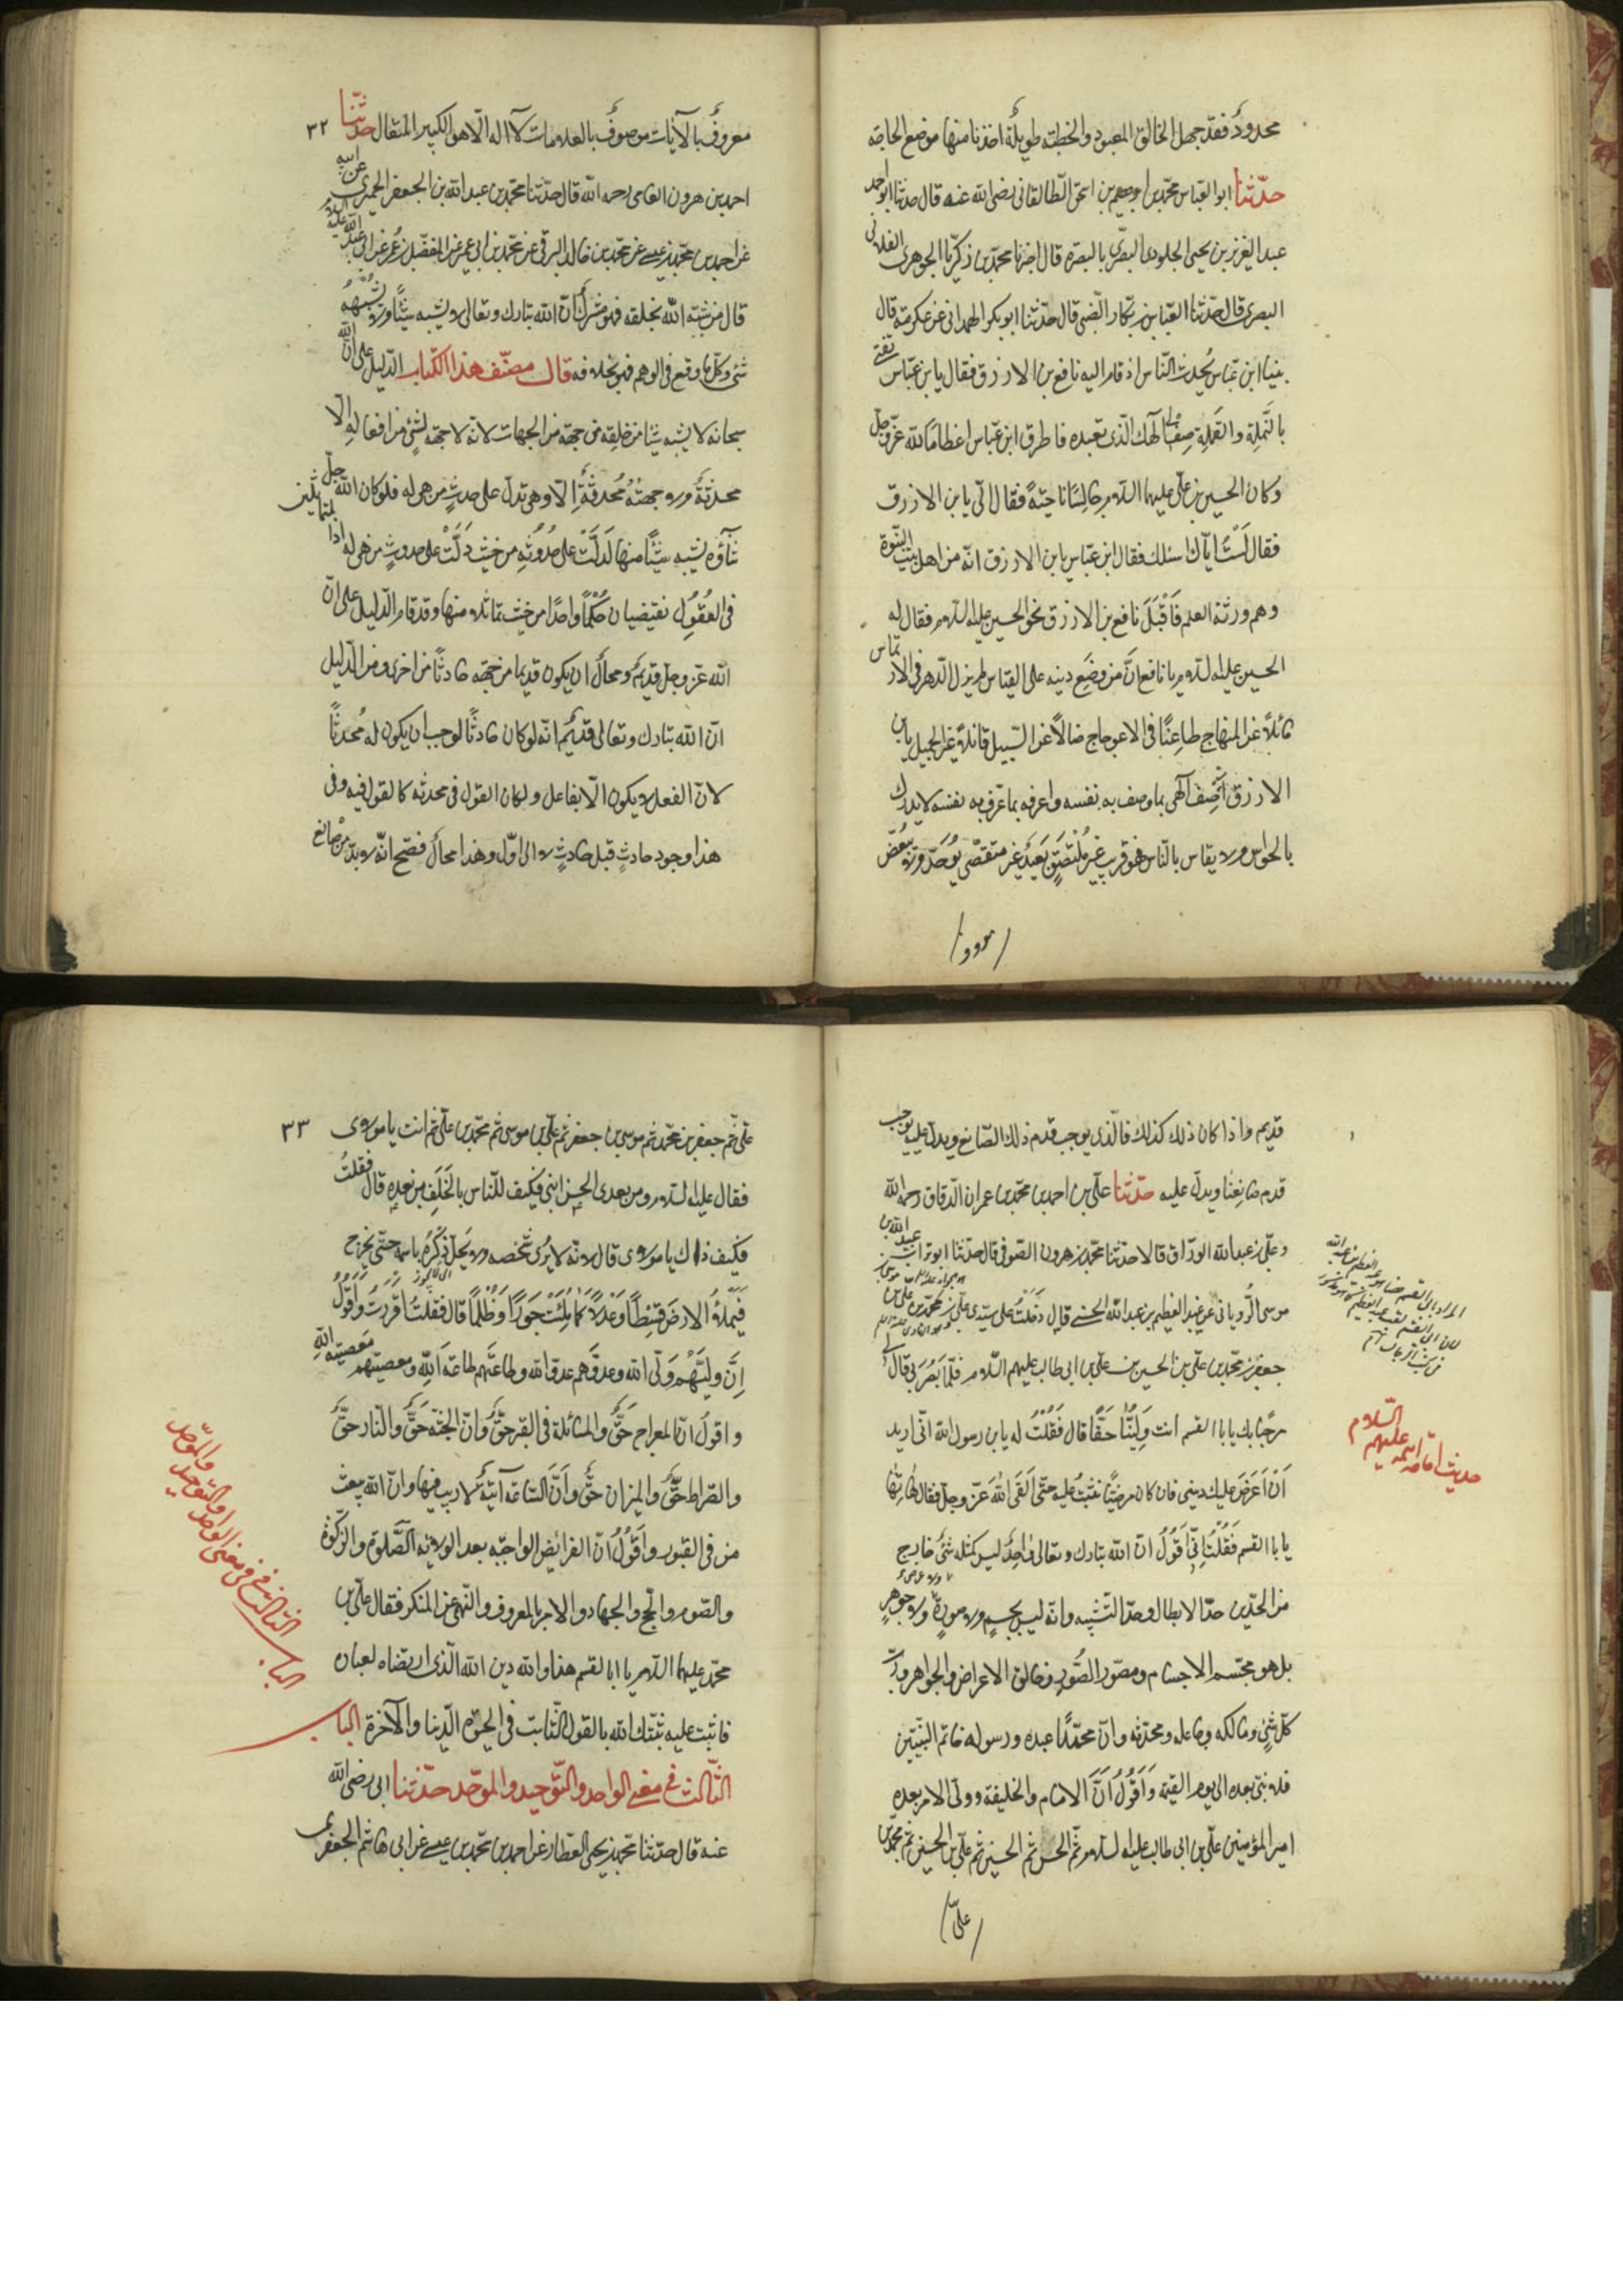 محدود فقد جهل الخالق المعبود والخطبة طويلة اخذنا منها موضع الحاجة
حدّثنا ابو العباس محمّد بن ابرهيم بن اسحق الطالقانى رضى الله عنه قال حدثنا ابو احمد
عبد العزيز بن يحيى الجلودى البصرى بالبصرة قال اخبرنا محمّد بن زكريّا الجوهرى الغلابى
البصرى قال حدّثنا العبّاس بن بكار الضّبى قال حدّثنا ابو بكر الهمدانى عن عكرمة قال
بينما ابن عبّاس يُحدث النّاس اذ قام اليه نافع بن الازرق فقال يابن عبّاس تفتى
بالنَّملة والقَملة صِف لى الهك الّذى تعبده فاطرق ابن عباس اعظامًا لله عزّ وجلّ
وكان الحسين بن علىّ عليهما السّلام جالسًا ناحيّةً فقال الىّ يابن الازرق
فقال لَسْتُ ايّاك اسئلك فقال ابن عبّاس يابن الازرق انّه من اهل بيت النبّوة
وهم ورثة العلم فَاَقْبَلَ نافع بن الازرق نحو الحسين عليه السّلام فقال له
الحسين عليه السّلام يا نافع انَّ من وضَع دينه على القياس لم يزل الدّهر فى الارتماس
مائلاً عن المنهاج ظاعنًا فى الاعوجاج ضالاًّ عن السّبيل قائلاً غير الجميل يابن
الازرق اَصِف الهى بما وصف به نفسه واعرفه بما عرّف به نفسه لا يدرك
بالحواس ولا يقاس بالنّاس فهو قريب غير مُلْتَصِقٍ بَعيدٌ غير متقصّى يُوَحّد ولا يُبَعّض
معروف
معروفٌ بالآيات موصوفٌ بالعلامات لا اله الّا هو الكبير المتعال حدّثنا ٣٢
احمد بن هرون الفامى رحمه الله قال حدّثنا محمّد بن عبد الله بن الجعفر الحميرى عن ابيه
عن احمد بن محمّد بن عيسى عن محمّد بن خالد البرقى عن محمّد بن ابى عمير عن المفضّل بن عُمر عن ابى عبد الله عليه السّلام
قال من شبّه الله بخلقه فهو مشرك انّ الله تبارك وتعالى لا يشبه شيئًا ولا يُشبِهُهُ
شئ وكلّ ما وقع فى الوهم فهو بخلافه قال مصنّف هذا الكتاب الدّليل على انّ الله
سبحانه لا يشبه شيئا من خلقه من جهة من الجهات لانّه لا جهة لشئ من افعاله الّا
محدثةٌ ولا جهةٌ مُحدثةٌ الّا وهى تدلّ على حدثِ من هى له فلو كان الله جلّ
ثناؤه يشبه شيئًا منها لَدلَّت على حُدُوثهِ من حيث دَلَّتْ على حدوثِ من هى له اذا المتماثلين
فى العُقُوُل يقتضيان حُكْمًا واحدًا من حيث تماثلا منها وقد قام الدّليل على انّ
الله عزّ وجلّ قديمٌ ومحالٌ ان يكون قديما من جهة حادثًا من اخرى ومن الدّليل
انّ الله تبارك وتعالى قديمٌ انّه لو كان حادثًا لوجب ان يكون له مُحدثًا
لانّ الفعل لا يكون الّا بفاعل ولكان القول فى محدثه كالقول فيه وفى
هذا وجود حادثٍ قبل حادثٍ لا الى اوّل وهذا محالٌ فصّح انّه لا بدّ من صانع
قديم واذا كان ذلك كذلك فالّذى يوجب قدم ذلك الصّانع ويدلّ عليه يوجب
قدم صانِعِنا ويدلّ عليه حدّثنا علىّ بن احمد بن محمّد بن عمران الدّقاق رحمه الله
وعلىّ بن عبد الله الورّاق قالا حدّثنا محمّد بن هرون الصّوفى قال حدّثنا ابو تراب عبيد الله بن
موسى الرُّويانى عن عبد العظيم بن عبد الله الحسنى قال دَخَلْتُ على سيّدى علىّ بن محمّد بن علىّ بن موسى بن
جعفر بن محمّد بن علىّ بن الحسين بن علىّ بن ابى طالب عليهم السّلام فلّما بَصُرَ بى قال لى
مرحبًا بك يا ابا القسم انت وَليُّنا حَقًّا قال فَقُلْتُ له يابن رسول الله انّى اريد
اَنْ اَعرَضَ عليك دينى فان كان مرضيًّا ثبتُ عليه حتّى اَلقَى اللهَ عَزّ وجلّ فقال هاتها
يا ابا القسم فَقُلْتُ اِنّى اَقُولُ انّ الله تبارك وتعالى واحِدٌ ليس كمثله شئ خارج
من الحدّين حدّ الابطال وحدّ التّشبيه وانّه ليس بجسمٍ ولا صورةٍ ولا عرض ولا جوهرٍ
بل هو مجسّم الاجسام ومصوّر الصُّورِ وخالق الاعراض والجواهر وربّ
كلّ شئٍ ومالكه وجاعله ومحدّثه وانّ محمّدًا عبده ورسوله خاتم النبّيّين
فلا نبىّ بعده الى يوم القيمة وَاَقُوُلُ اَنّ الامام والخليفة وولىّ الامر بعده
امير المؤمنين علىّ بن ابى طالب عليه السّلام ثمّ الحسن ثمّ الحسين ثم علىّ بن الحسين ثم محمّد بن
علىّ
حديث امامة ائمّة عليهم السّلام
علىّ ثم جعفر بن محمّد ثم موسى بن جعفر ثم علىّ بن موسى ثم محمّد بن علىّ ثم انت يا مولاى ٣٣
فقال عليه السّلام ومن بعدى الحسن ابنى فكيف للنّاس بالخَلَفِ من بعدِهِ قال فقلتُ
فكيف ذاك يا مولاى قال لانّه لا يُرى شخصه ولا يحلّ ذِكرُهُ باسمه حتّى يخرج
فَيَملأ الارضَ قِسْطًا وَعَدْلاً كما مُلِئَتْ جَورًا وَظُلمًا قال فقلتُ اقررتُ وَاَقُولُ
اِنَّ وليَّهُم وَلىّ الله وعدوّهم عدوّ الله وطاعتَهم طاعَة الله ومعصيتهم مَعصيتهِ اللهِ
واقولُ انّ المعراج حَقٌّ والمسائلة فى القبر حقٌّ وانّ الجنّة حَقٌّ والنّار حقٌّ
والصّراط حَقٌّ والميزان حَقٌّ وَاَنَّ السّاعة آتيةٌ لا ريب فيها وانّ الله يبعث
من فى القبور واَقُوُلُ انّ الفرائض الواجبّه بعد الولايه الصَّلوة والزّكوة
والصّوم والحجّ والجهاد والامر بالمعروف والنّهى عن المنكر فقال علىّ بن
محمّد عليهما السّلام يا ابا القسم هذا والله دين الله الّذى ارتضاه لعباده
فاثبت عليه ثبّتك الله بالقول الثّابت فى الحيوة الدّنيا والآخرة الباب
الثّالث فى معنى الواحد والتّوحيد والموحّد حدّثنا ابى رضى الله
عنه قال حدّثنا محمّد بن يحيى العطّار عن احمد بن محمّد بن عيسى عن ابى هاشم الجعفرى
الباب الثالث فى معنى الواحد والتّوحيد والموحّد